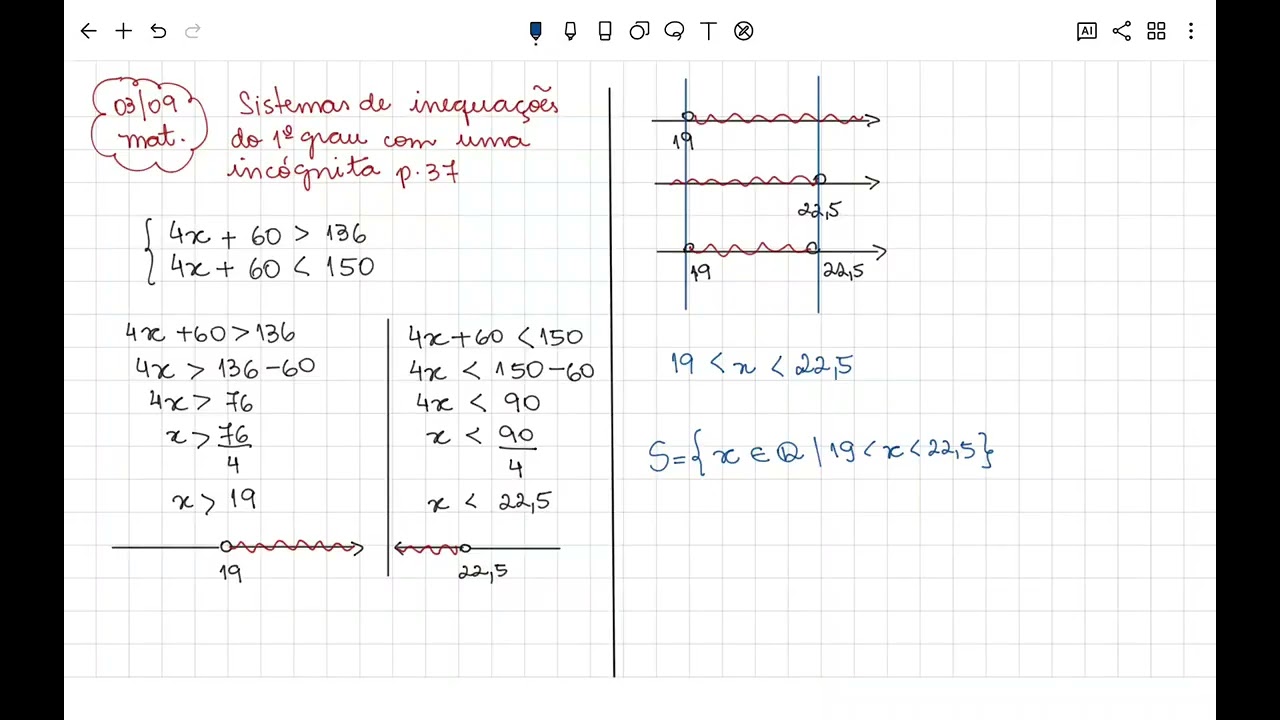 T
AI
03/09
mat.
Sistemas de inequações
do 1º grau com uma
incógnita p.37
4x + 60 > 136
4x + 60 < 150
4x + 60 > 136
4x > 136 - 60
4x > 76
x > 76
4
x > 19
19
4x + 60 < 150
4x < 150 - 60
4x < 90
x < 90
4
x < 22,5
22,5
19
22,5
19 22,5
19 < x < 22,5
S = { x ∈ ℚ | 19 < x < 22,5 }